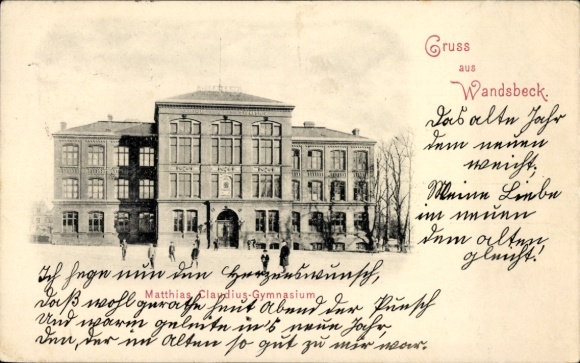 Gruss
aus
Wandsbeck.
Das alte Jahr
dem neuen
weicht,
Meine Liebe
im neuen
dem alten
gleicht!
Ich hege nun den Herzenswunsch,
Matthias Claudius-Gymnasium
Daß wohl gerathe heut Abend der Punsch
Und warm geleite in's neue Jahr
Den, der im Alten so gut zu mir war.